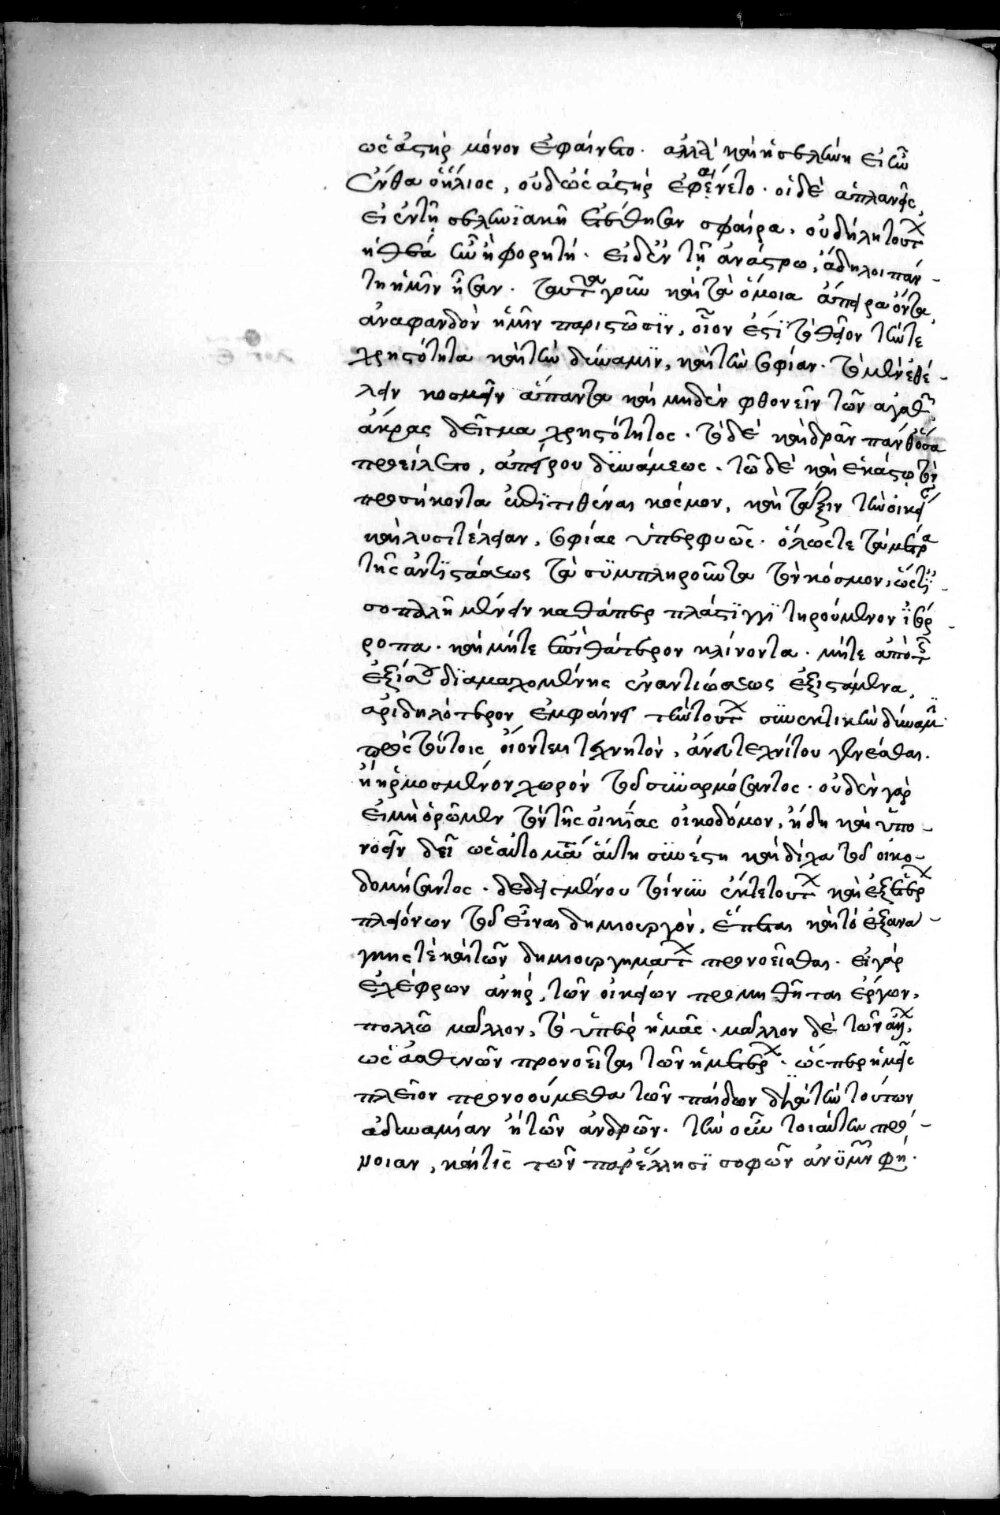 ὡς ἀστὴρ μόνον ἐφαίνετο. ἀλλὰ καὶ ἡ σελήνη εἰ ἦν
ἔνθα ὁ ἥλιος, οὐδ' ὡς ἀστὴρ ἐφαίνετο. οἱ δὲ ἀπλανεῖς
εἰ ἐν τῇ σεληνϊακῇ ἐτέθησαν σφαίρα, οὐ δήλη τούτων
ἡ θέα ἦν ἢ φορητή. εἰ δ' ἐν τῇ ἀνάστρω, ἄδηλοι πάν-
τη ἡμῖν ἦσαν. ταῦτα γοῦν καὶ τὰ ὅμοια ἄπειρα ὄντα,
ἀναφανδὸν ἡμῖν παριστῶσϊν, οἷον ἐστὶ τὸ θεῖον τήν τε
χρηστότητα καὶ τὴν δύναμϊν, καὶ τὴν σοφίαν. τὸ μὲν ἐθέ-
λειν κοσμεῖν ἅπαντα καὶ μηδὲν φθονεῖν τῶν ἀγαθῶν,
ἄκρας δεῖγμα χρηστότητος. τὸ δὲ καὶ δρᾶν πάνθ' ὅσα
προείλετο, ἀπείρου δυνάμεως. τῶ δὲ καὶ ἑκάστω τὸν
προσήκοντα ἐπϊτιθέναι κόσμον, καὶ τάξιν τὴν οἰκείαν
καὶ λυσιτέλειαν, σοφίας ὑπερφυοῦς. ὅλως τε τὰ μέτρα
τῆς ἀντϊστάσεως τὰ συμπληροῦντα τὸν κόσμον,
σοπαλῆ μένειν καθάπερ πλάστϊγγϊ τηρούμενον ἰσόρ-
ροπα. καὶ μήτε ἐπὶ θάτερον κλίνοντα. μήτε ἀπὸ τῆς
ἐξίσου δϊαμαχομένης ἐναντιώσεως ἐξιστάμενα,
ἀριδηλότερον ἐμφαίνει τὴν τούτων συνεκτικὴν δύναμϊν
πρὸς τούτοις οἴονταί τι τεχνητὸν, ἄνευ τεχνίτου γενέσθαι.
ἢ ἡρμοσμένον χωρὶς τοῦ συναρμόσαντος. οὐδὲν γὰρ
εἰ μὴ ὁρῶμεν τὸν τῆς οἰκίας οἰκοδόμον, ἤδη καὶ ὑπο-
νοεῖν δεῖ ὡς αὐτομάτη αὕτη συνέστη καὶ δίχα τοῦ οἰκο-
δομήσαντος. δεδειγμένου τοίνυν ἔκ τε τούτων καὶ ἐξ ἑτέρων
πλειόνων τοῦ εἶναι δημιουργὸν, ἕπεται καὶ τὸ ἐξ ἀνά-
γκης τὲ καὶ τῶν δημιουργημάτων προνοεῖσθαι. εἰ γὰρ
ἐχέφρων ἀνὴρ, τῶν οἰκείων προμηθῆται ἔργων,
πολλῶ μᾶλλον, τὸ ὑπὲρ ἡμᾶς. μᾶλλον δὲ τῶν
ὡς ἀσθενῶν προνοεῖται τῶν ἡμετέρων. ὥσπερ ἡμεῖς
πλεῖον προνοούμεθα τῶν παίδων διὰ τὴν τούτων
ἀδυναμίαν ἢ τῶν ἀνδρῶν. τὴν οὖν τοιαύτην πρό-
νοιαν, καί τις τῶν παρ' ἕλλησϊ σοφῶν ἀνϋμνῶν φη.